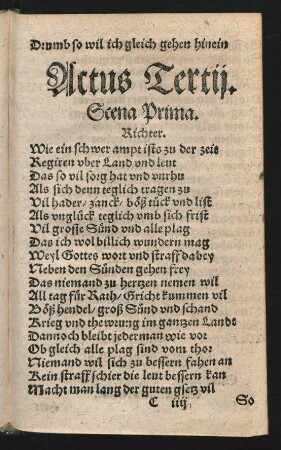 Drumb so wil ich gleich gehen hinein
Actus Tertij.
Scena Prima.
Richter.
Wie ein schwer ampt ists zu der zeit
Regiren vber Land vnd leut
Das so vil sorg hat vnd vnrhu
Als sich denn teglich tragen zu
Vil hader/ zanck/ böß tück vnd list
Als vnglück teglich vmb sich frist
Vil grosse Sünd vnd alle plag
Das ich wol billich wundern mag
Weyl Gottes wort vnd straff dabey
Neben den Sünden gehen frey
Das niemand zu hertzen nemen wil
All tag für Rath/ Gricht kummen vil
Böß hendel/ groß Sünd vnd schand
Krieg vnd thewrung im gantzen Landt
Dannoch bleibt jederman wie vor
Ob gleich alle plag sind vom thor
Niemand wil sich zu bessern fahen an
Kein straff schier die leut bessern kan
Macht man lang der guten gsetz vil
C iiij So